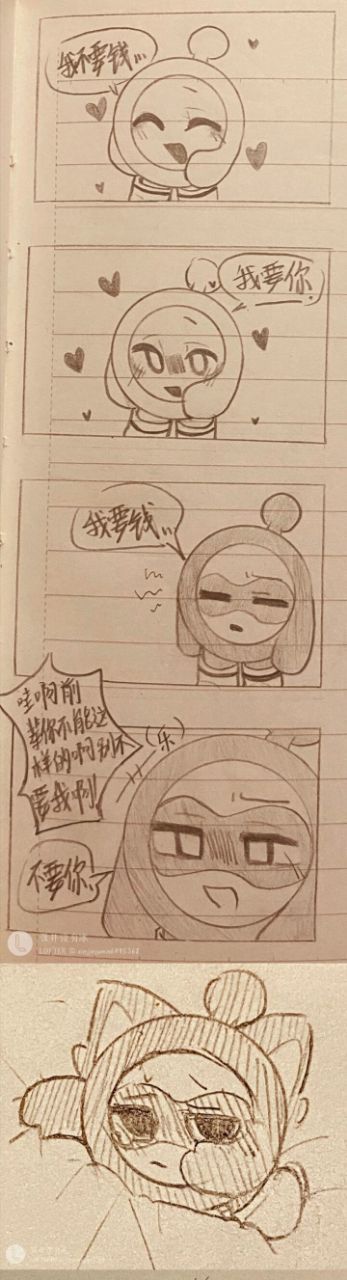 我不要钱...
我要你
我要钱...
哇啊前
辈你不能这
样的啊别不
要我啊
(乐)
不要你
LOFTER